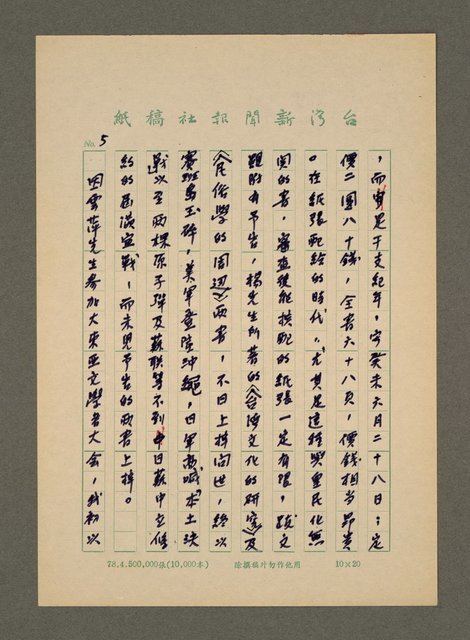 台灣新聞報社稿紙
No. 5
，而是干支紀年，字癸未六月二十八日；定
價二圓八十錢，全書六十八頁，價錢相當昂貴
。在紙張配給的時代，尤其是這種與皇民化無
關的書，審查後能撥配的紙張一定有限，跋文
題附有予告，楊先生所著的《台灣文化的研究》及
《民俗學的周邊》兩書，不日上梓問世，終以
賽班島玉碎，美軍登陸沖繩，日軍高喊「本土決
戰」以至兩棵原子彈及蘇聯等不到中日蘇中立條
約的屆滿宣戰，而未見予告的兩書上梓。
因雲萍先生參加大東亞文學者大會，我初以
78.4.500,000張(10,000本)
除撰稿片勿作他用
10×20